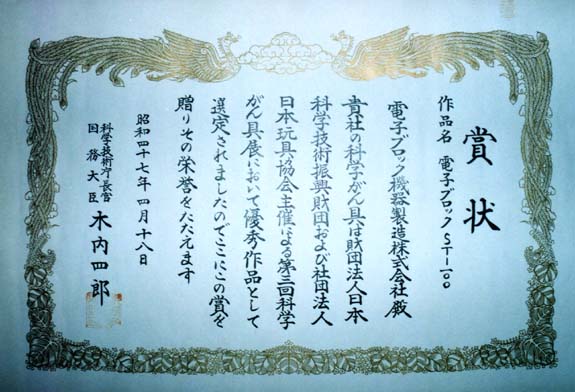 賞状
作品名 電子ブロックST-100
電子ブロック機器製造株式会社殿
貴社の科学がん具は財団法人日本
科学技術振興財団および社団法人
日本玩具協会主催による第三回科学
がん具展において優秀作品として
選定されましたのでここにこの賞を
贈りその栄誉をたたえます
昭和四十七年四月十八日
科学技術庁長官
国務大臣 木内四郎